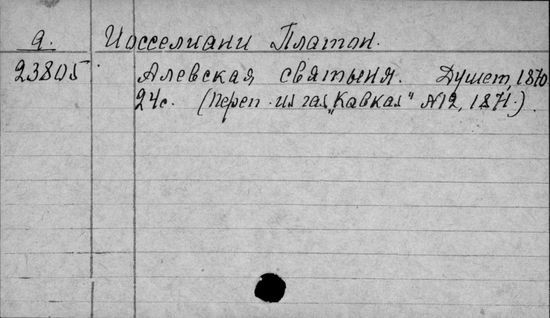 а. Иосселиани Платон.
23805 Алевская святыня. Душет, 1870.
24с. (Переп. из газ. „Кавказ" N12, 1871.)